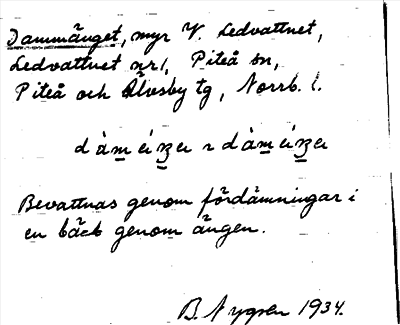 Dammänget, myr V. Ledvattnet,
Ledvattnet nr 1, Piteå sn,
Piteå och Älvsby tg, Norrb. l.
Bevattnas genom fördämningar i
en bäck genom ängen.
B. Nygren 1934.